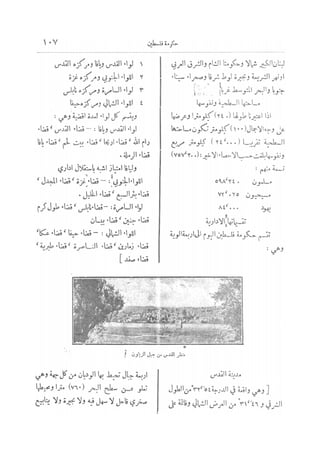 حكومة فلسطين
١٠٧
لبنان الكبير شمالا وحكومتا الشام والشرق العربي
ونهر الشريعة وبحيرة لوط شرقا وصحراء سيناء
جنوبا والبحر المتوسط غربا
مساحتها السطحية ونفوسها
اذا اعتبرنا طولها (٢٤٠) كيلومتر وعرضها
على وجه الاجمال (١٠٠) كيلومتر تكون مساحتها
السطحية تقريبا (٢٤٠٠٠) كيلومتر مربع
ونفوسها بلغت حسب الاحصاء الاخير (٧٥٧٠)
نسمة منهم :
مسلمون
مسيحيون
يهود
تقسيماتها الادارية
تقسم حكومة فلسطين اليوم الى اربعة الوية
وهي :
١ لواء القدس ويافا ومركزه القدس
٢ اللواء الجنوبي ومركزه غزة
٣ لواء السامرة ومركزه نابلس
٤ اللواء الشمالي ومركزه حيفا
ويقسم كل لواء لعدة اقضية وهي :
لواء القدس ويافا : - قضاء القدس * قضاء
رام الله * قضاء اريحا * قضاء بيت لحم * قضاء يافا
قضاء الرملة .
وليافا امتياز اشبه باستقلال اداري
اللواء الجنوبي : - قضاء غزة * قضاء المجدل *
قضاء بئر السبع * قضاء الخليل .
لواء السامرة : - قضاء نابلس * قضاء طول كرم
قضاء جنين * قضاء بيسان
اللواء الشمالي : - قضاء حيفا * قضاء عكا *
قضاء زمارين * قضاء الناصرة * قضاء طبرية *
قضاء صفد ]
منظر القدس من جبل الزيتون
مدينة القدس
[ وهي واقعة في الدرجة من الطول
الشرقي و من العرض الشمالي وقائمة على
اربعة جبال تحيط بها الوديان من كل جهة وهي
تعلو عن سطح البحر (٧٦٠) مترا ومحيطها
صخري قاحل لا سهل فيه ولا بحيرة ولا ينابيع